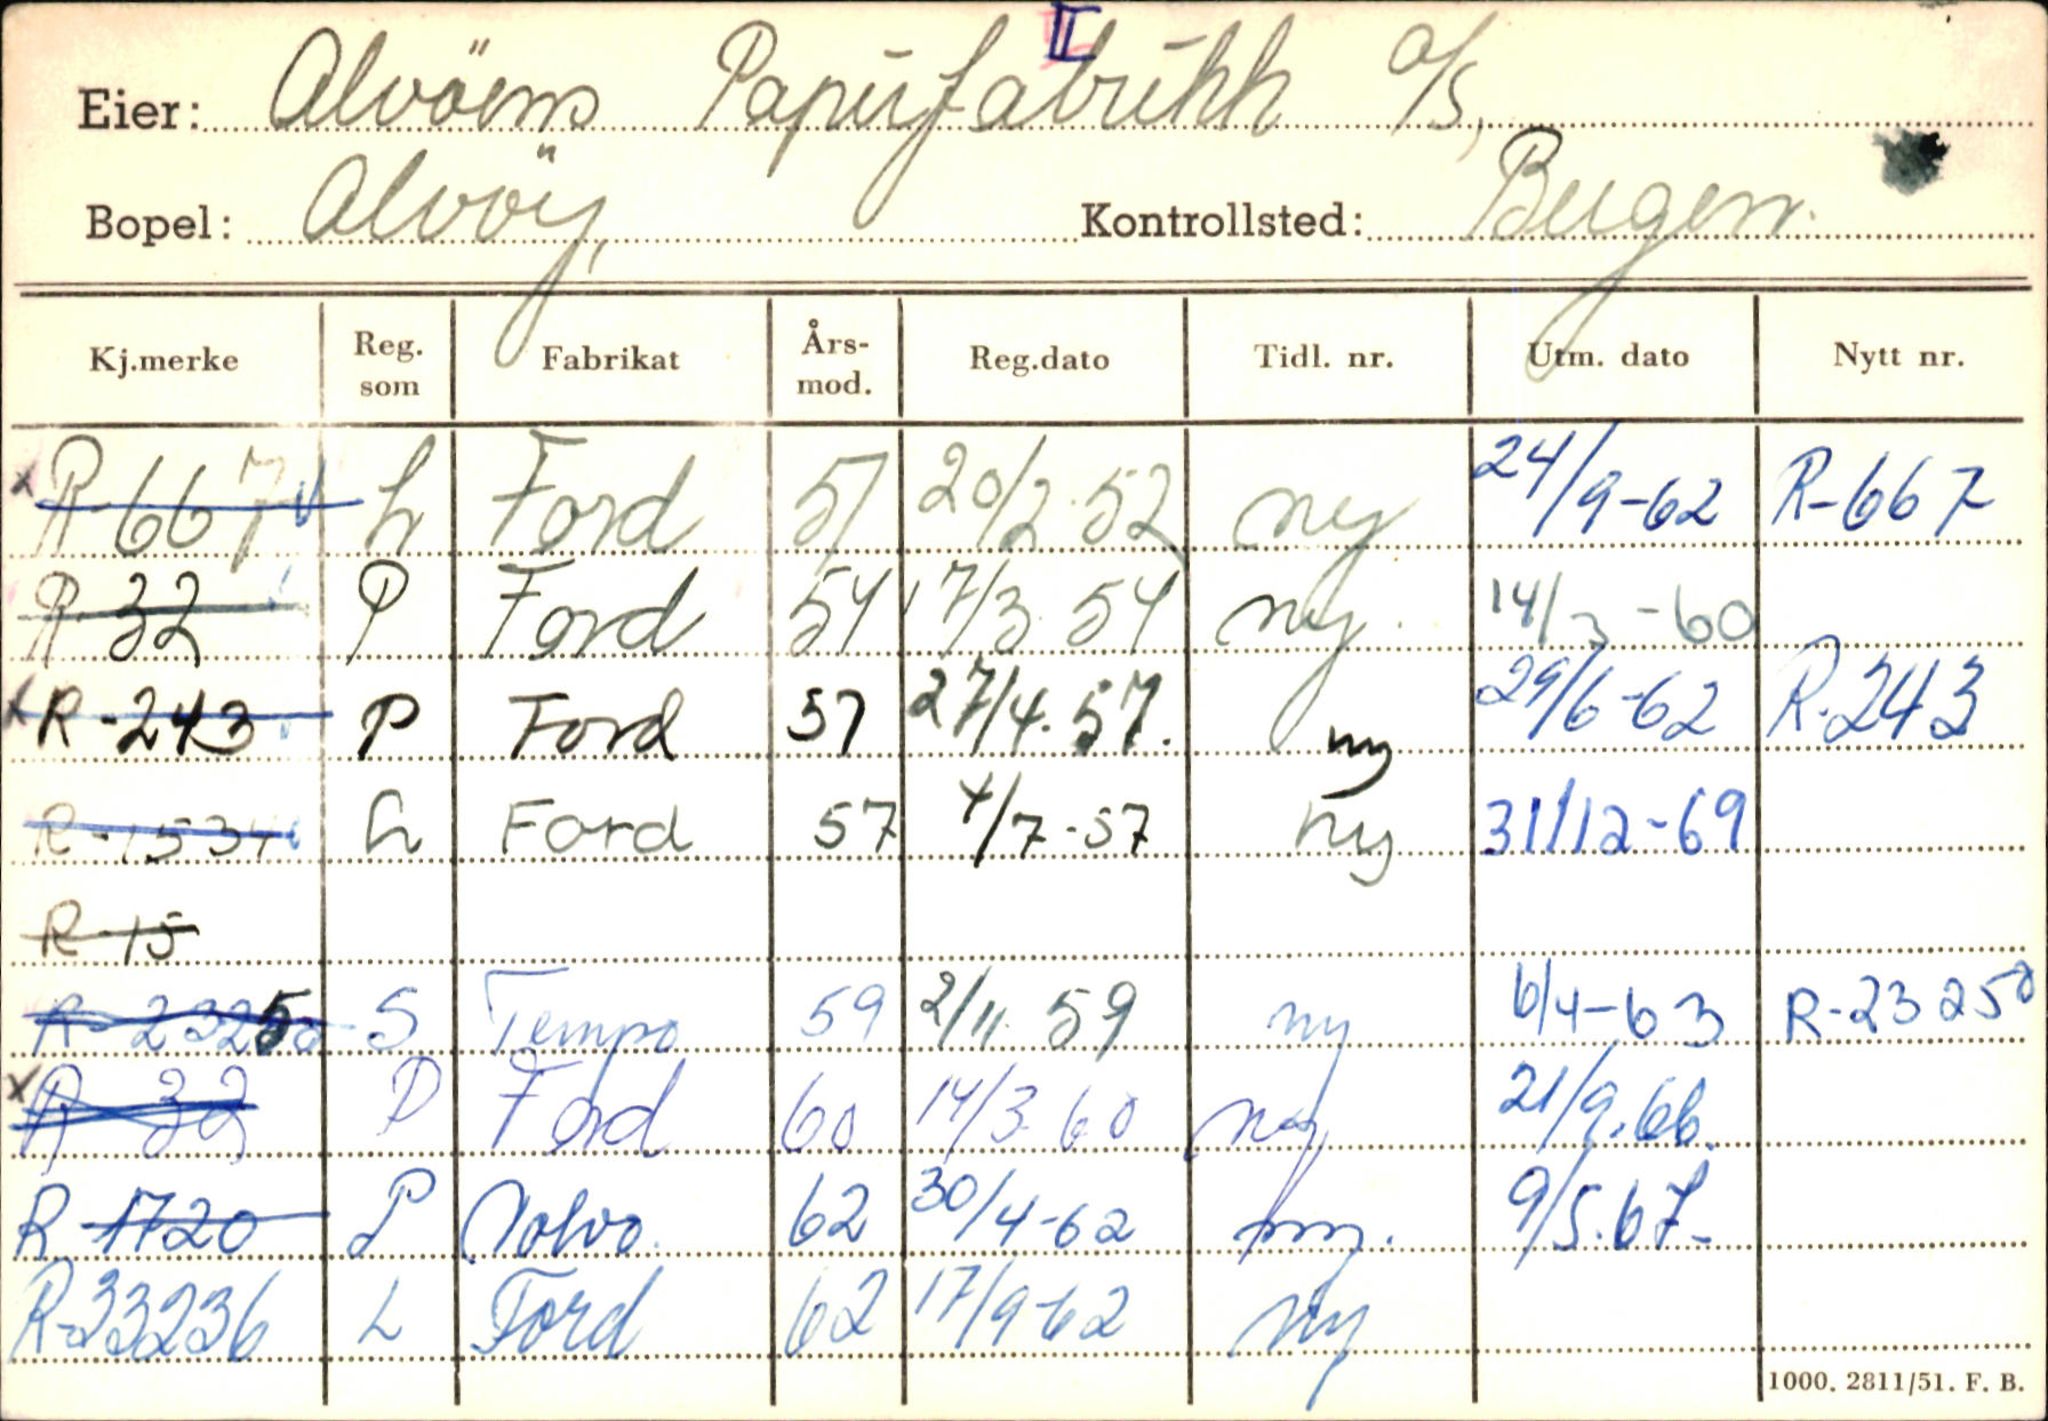 II
Eier: Alvöens Papirfabrikk A/S,
Bopel: Alvöy, Kontrollsted: Bergen.
Kj.merke Reg. som Fabrikat Års-mod. Reg.dato Tidl. nr. Utm. dato Nytt nr.
x R-667 L Ford 51 20/2-52 ny 24/9-62 R-667
R-32 P Ford 54 17/3 54 ny. 14/3-60
x R-243 P Ford 57 27/4.57. ny 29/6-62 R-243
R-1534 L Ford 57 4/7-57 ny 31/12-69
R-15
R-23250 S Tempo 59 2/11 59 ny 6/4-63 R-23250
x R-32 P Ford 60 14/3 60 ny 21/9.66.
R-1720 P Volvo. 62 30/4-62 ny. 9/5.67-
R-33236 L Ford 62 17/9-62 ny
1000. 2811/51. F. B.